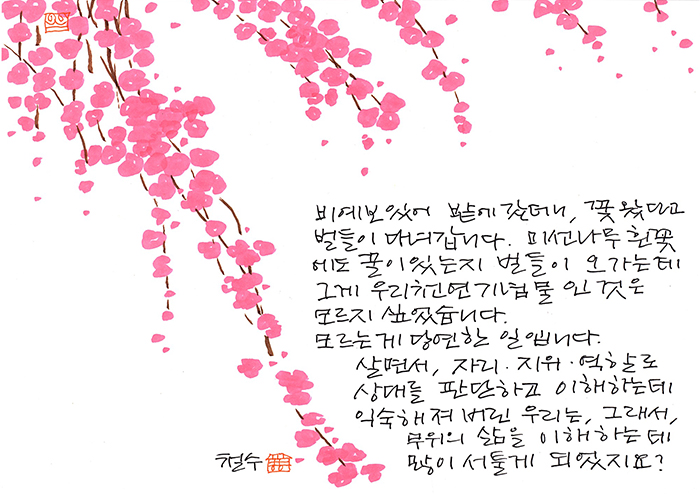 비예보 있어 밭에 갔더니, 꽃 왔다고
벌들이 다녀갑니다. 미선나무 흰꽃
에도 꿀이 있는지 벌들이 오가는데
그게 우리 천연기념물 인 것은
모르지 싶었습니다.
모르는게 당연한 일입니다.
살면서, 자리·지위·역할로
상대를 판단하고 이해하는데
익숙해져 버린 우리는, 그래서,
무위의 삶을 이해하는데
많이 서툴게 되었지요?
철수